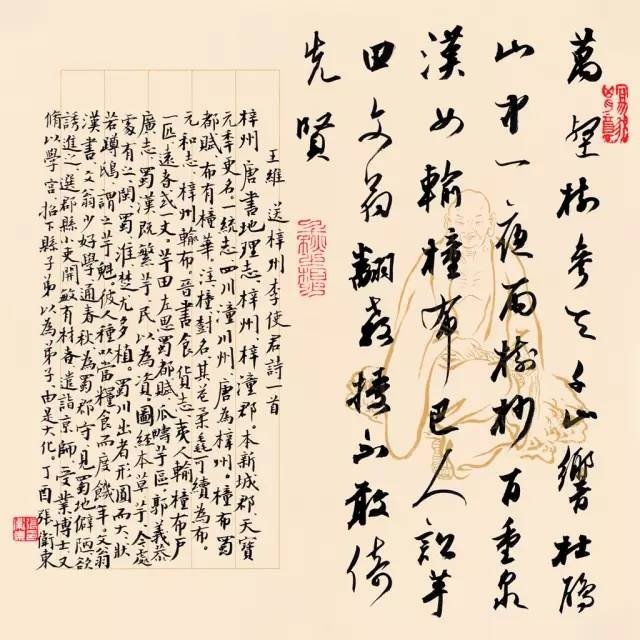 萬壑樹參天千山響杜鵑
山中一夜雨樹杪百重泉
漢女輸橦布巴人訟芋
田文翁翻教授不敢倚
先賢
王維 送梓州李使君詩一首
梓州唐書地理志梓州梓潼郡。本新城郡天寶
元季更名一統志四川潼川州唐為梓州。橦布蜀
都賦布有橦華注橦樹名其花柔毳可績為布。
元和志梓州輸布。晉書食貨志夷人輸橦布戶
一匹遠者或一丈。芋田左思蜀都賦瓜疇芋區郭義恭
廣志蜀漢既繁芋民以為資圖經本草芋今處
處有之閩蜀淮楚尤多植。蜀川出者形圓而大狀
若蹲鴟謂之芋魁彼人種以當糧食而度饑年。文翁
漢書文翁少好學通春秋為蜀郡守見蜀地僻陋欲
誘進之選郡縣小吏開敏有材者遣詣京師受業博士又
脩以學宮招下縣子弟以為弟子由是大化。丁酉張衛東